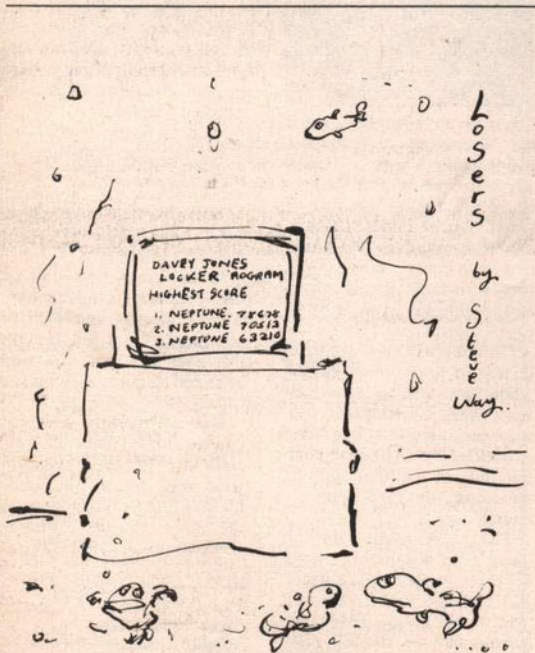 Losers by Steve Way.
DAVEY JONES
LOCKER ROGRAM
HIGHEST SCORE
1. NEPTUNE. 78678
2. NEPTUNE 70513
3. NEPTUNE 63210